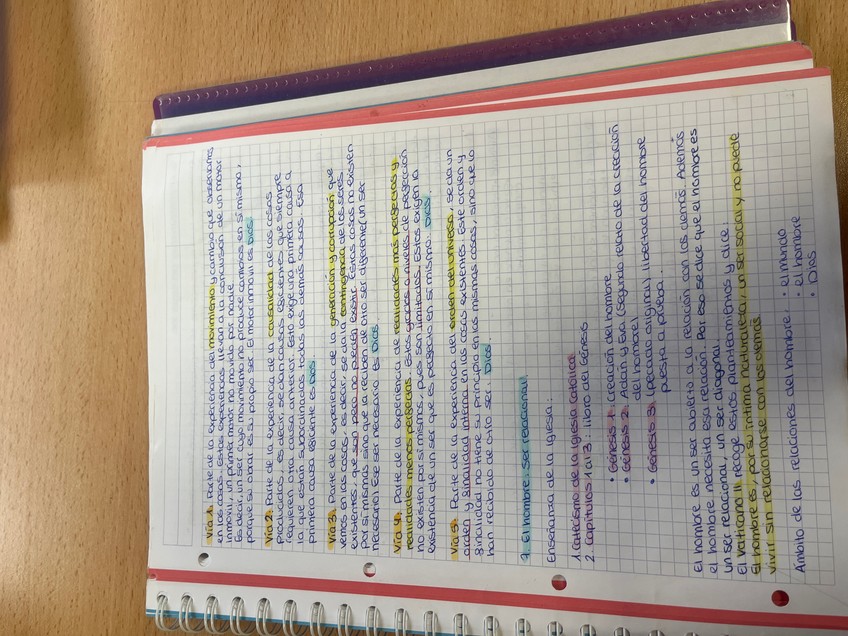 Vía 1. Parte de la experiencia del movimiento y cambio que observamos
en las cosas. Estas experiencias llevan a la conclusión de un motor
inmóvil, un primer motor no movido por nadie.
Es decir, un ser cuyo movimiento no produce cambios en sí mismo,
porque su obrar es su propio ser. El motor inmóvil es Dios.
Vía 2. Parte de la experiencia de la causalidad de las cosas
producidas, es decir, se dan causas eficientes que siempre
requieren otra causa anterior. Esto exige una primera causa a
la que están subordinadas todas las demás causas. Esa
primera causa eficiente es Dios.
Vía 3. Parte de la experiencia de la generación y corrupción que
vemos en las cosas, es decir, se da la contingencia de los seres
existentes, que son pero no pueden existir. Estas cosas no existen
por sí mismas sino que la reciben de otro ser diferente (un ser
necesario) Ese ser necesario es Dios.
Vía 4. Parte de la experiencia de realidades más perfectas y
realidades menos perfectas. Estos grados o niveles de perfección
no existen por sí mismos, pues son limitados. Estos exigen la
existencia de un ser que es perfecto en sí mismo. Dios.
Vía 5. Parte de la experiencia del orden del universo, se da un
orden y finalidad interna en las cosas existentes. Este orden y
finalidad no tiene su principio en las mismas cosas, sino que lo
han recibido de otro ser. Dios.
7. El hombre, ser relacional.
Enseñanza de la Iglesia:
1. Catecismo de la Iglesia Católica.
2. Capítulos 1 al 3. libro del Génesis
• Génesis 1: Creación del hombre
• Génesis 2: Adán y Eva (segundo relato de la creación
del hombre)
• Génesis 3: (pecado original) libertad del hombre
puesta a prueba.
El hombre es un ser abierto a la relación con los demás. Además
el hombre necesita esa relación. Por eso se dice que el hombre es
un ser relacional, un ser diagonal.
El Vaticano II recoge estos planteamientos y dice:
El hombre es, por su íntima naturaleza, un ser social y no puede
vivir sin relacionarse con los demás.
Ámbito de las relaciones del hombre
• el mundo
• el hombre
• Dios